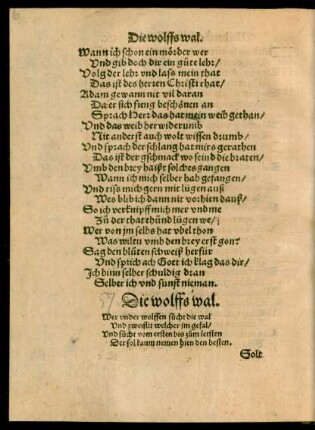 Die wolffs wal.
Wann ich schon ein mörder wer
Vnd gib doch dir ein gůte lehr/
Volg der lehr vnd lass mein that
Das ist des herren Christi rhat/
Adam gewann nit vil daran
Da er sich fieng beschönen an
Sprach Herr das hat mein weib gethan/
Vnd das weib her widerumb
Nit anderst auch wolt wissen drumb/
Vnd sprach der schlang hat mirs gerathen
Das ist der gschmack wo seind die braten/
Vmb den brey haißt solches gangen
Wann ich mich selber hab gefangen/
Vnd riss mich gern mit lügen auß
Wes blib ich dann nit vorhien dauß/
So ich verknipff mich mer vnd me
Zů der that thůnd lügen we/
Wer von jm selbs hat vbel thon
Was wiltu vmb den brey erst gon?
Sag den blůten schweiß herfür
Vnd sprich ach Gott ich klag das dir/
Ich binn selber schuldig dran
Selber ich vnd sunst nieman.
57 Die wolffs wal.
Wer vnder wolffen sůcht die wal
Vnd zweiflit welcher jm gefal/
Vnd sůcht vom ersten bis zům letsten
Der sol kaum nemen hien den besten.
Solt